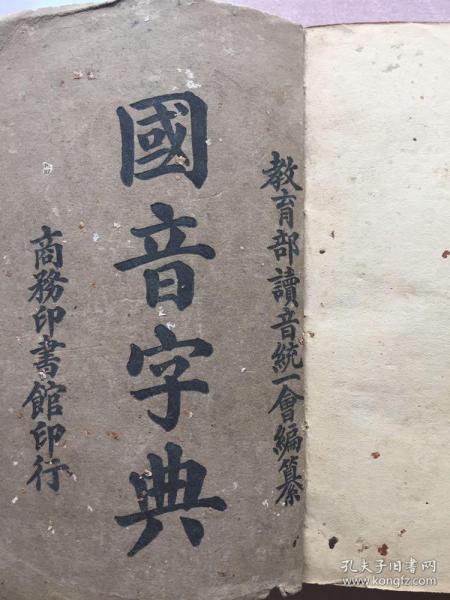 教育部讀音統一會編纂
國音字典
商務印書館印行
孔夫子旧书网
www.kongfz.com